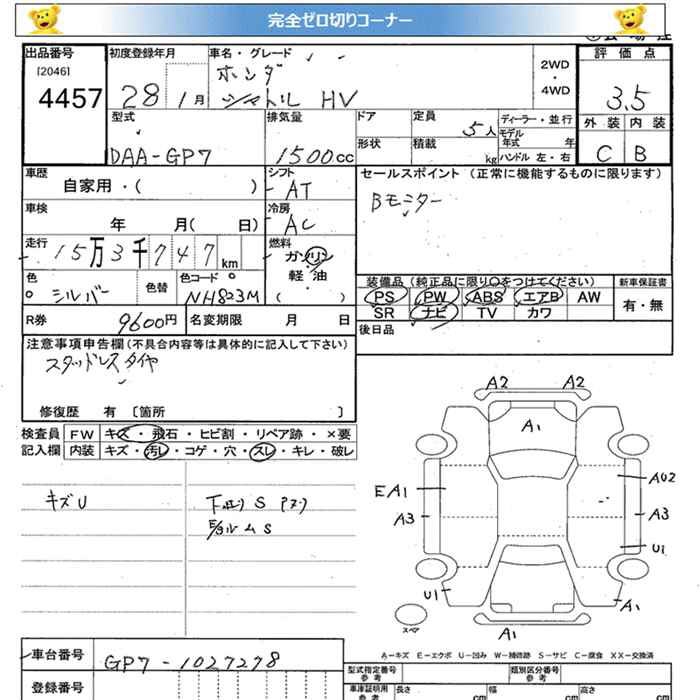 完全ゼロ切りコーナー
出品番号 初度登録年月 車名・グレード 評価点
[2046] ホンダ 2WD
・
4457 28 1月 シャトル HV 4WD 3.5
型式 排気量 ドア 定員 5人 ディーラー・並行 外装 内装
モデル年式 年
DAA-GP7 1500cc 形状 積載 kg ハンドル 左・右 C B
車歴 シフト セールスポイント(正常に機能するものに限ります)
自家用・( ) AT Bモニター
車検 冷房
年 月( 日) AC
走行 燃料
15万3千747km ガソリン
軽・油
色 色替 色コード ( ) 装備品(純正品に限り○をつけてください) 新車保証書
シルバー NH823M PS PW ABS エアB AW 有・無
SR ナビ TV カワ
R券 9600円 名変期限 月 日 後日品
注意事項申告欄(不具合内容等は具体的に記入して下さい)
スタッドレスタイヤ
修復歴 有 [箇所 ]
検査員 FW キズ・飛石・ヒビ割・リペア跡・×要
記入欄 内装 キズ・汚レ・コゲ・穴・スレ・キレ・破レ
キズU S
ルームS
A2 A2
A1
EA1 AU2
A3 A3
U1
U1 A1
スペア A1
A−キズ E−エクボ U−凹み W−補修跡 S−サビ C−腐食 XX−交換済
車台番号 GP7-1027278 型式指定番号 参考 類別区分番号 参考
登録番号 車庫証明用 参考 長さ cm 幅 cm 高さ cm